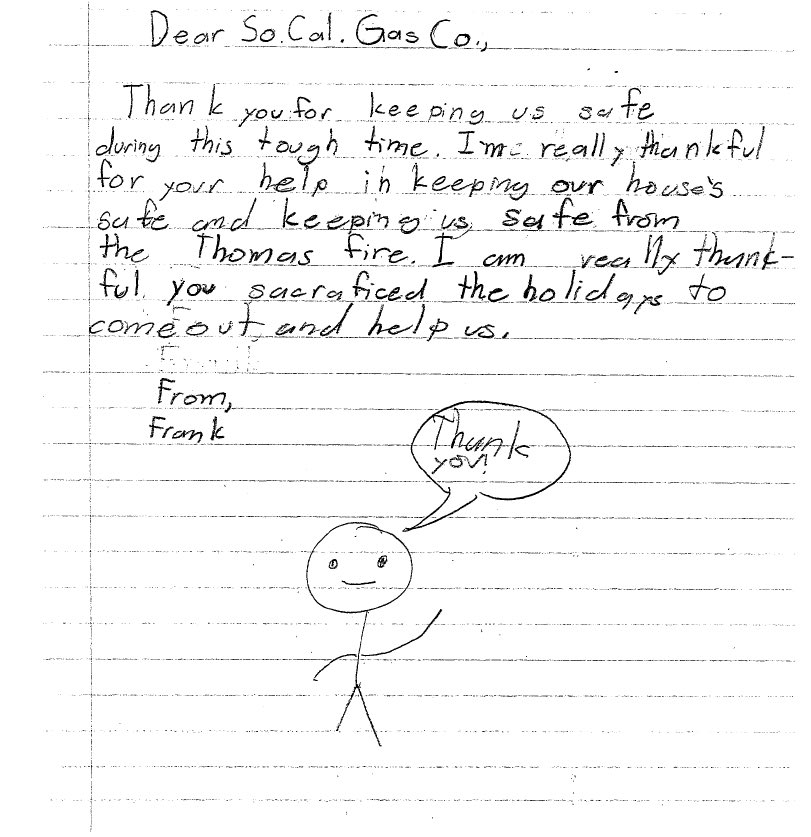 Dear So. Cal. Gas Co.,
Thank you for keeping us safe
during this tough time. I'me really thankful
for your help in keeping our house's
safe and keeping us safe from
the Thomas fire. I am really thank-
ful you sacraficed the holidays to
come out and help us.
From,
Frank
Thank
you!